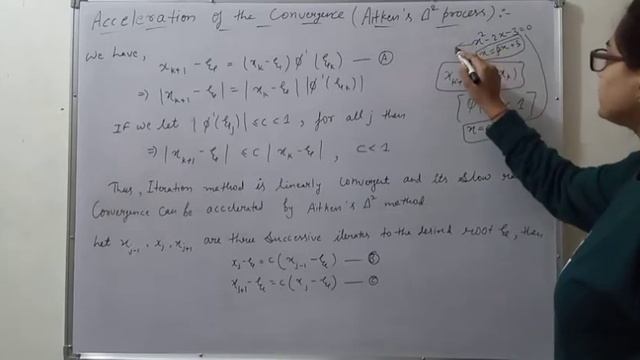 Acceleration of the Convergence (Aitken's Δ² process) :-
We have,
x_{k+1} - ξ = (x_k - ξ) φ'(ξ_k) — (A)
⇒ |x_{k+1} - ξ| = |x_k - ξ| |φ'(ξ_k)|
If we let |φ'(ξ_j)| ≤ c < 1, for all j then
⇒ |x_{k+1} - ξ| ≤ c |x_k - ξ|, c < 1
Thus, Iteration method is linearly convergent and its slow
Convergence can be accelerated by Aitken's Δ² method
Let x_{j-1}, x_j, x_{j+1} are three successive iterates to the desired root ξ, then
x_j - ξ = c (x_{j-1} - ξ) — (B)
x_{j+1} - ξ = c (x_j - ξ) — (C)
x² - 2x - 3 = 0